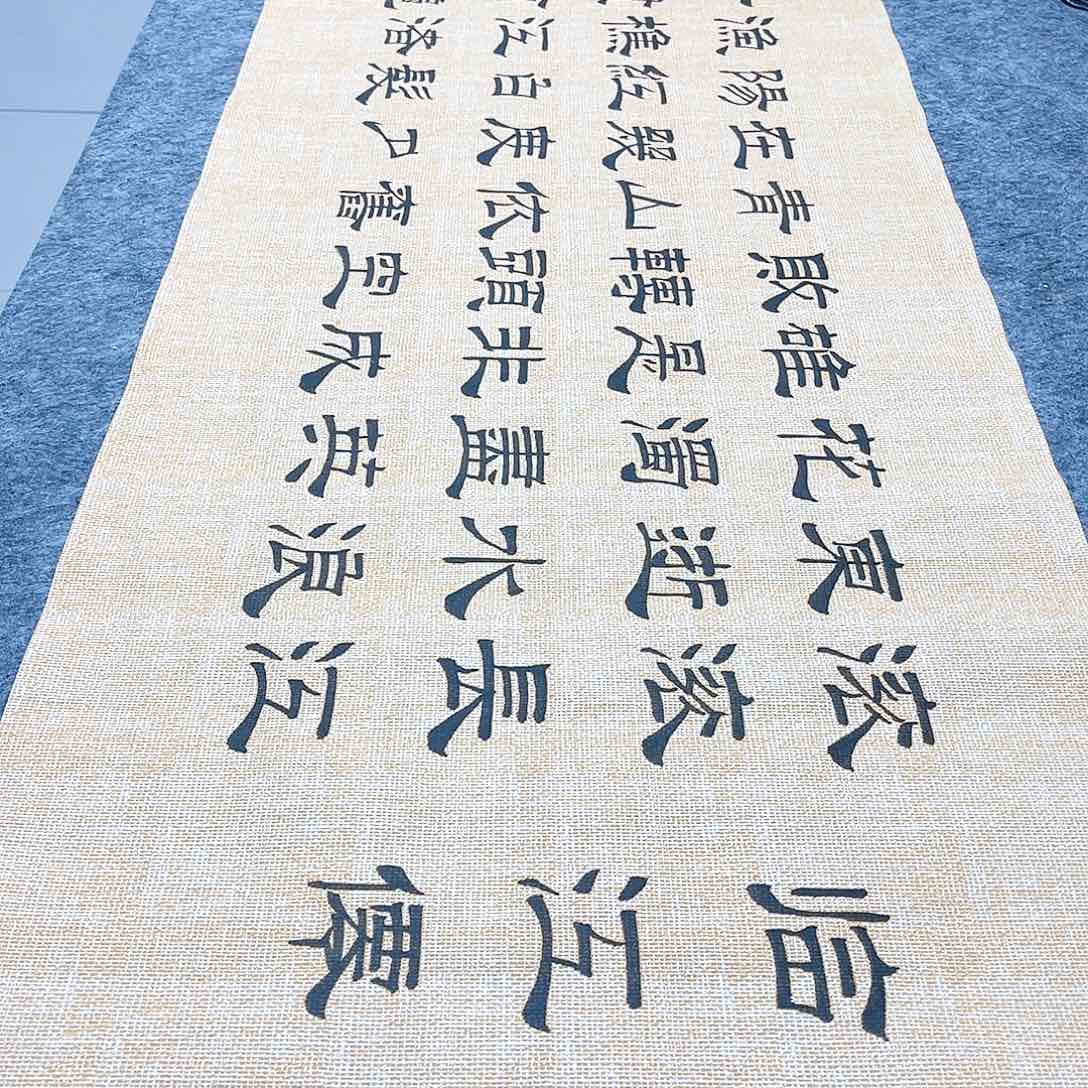 临江僊
滚滚長江
東逝水浪
花淘盡英
雄是非成
敗轉頭空
青山依舊
在幾度夕
陽紅白髮
漁樵江渚